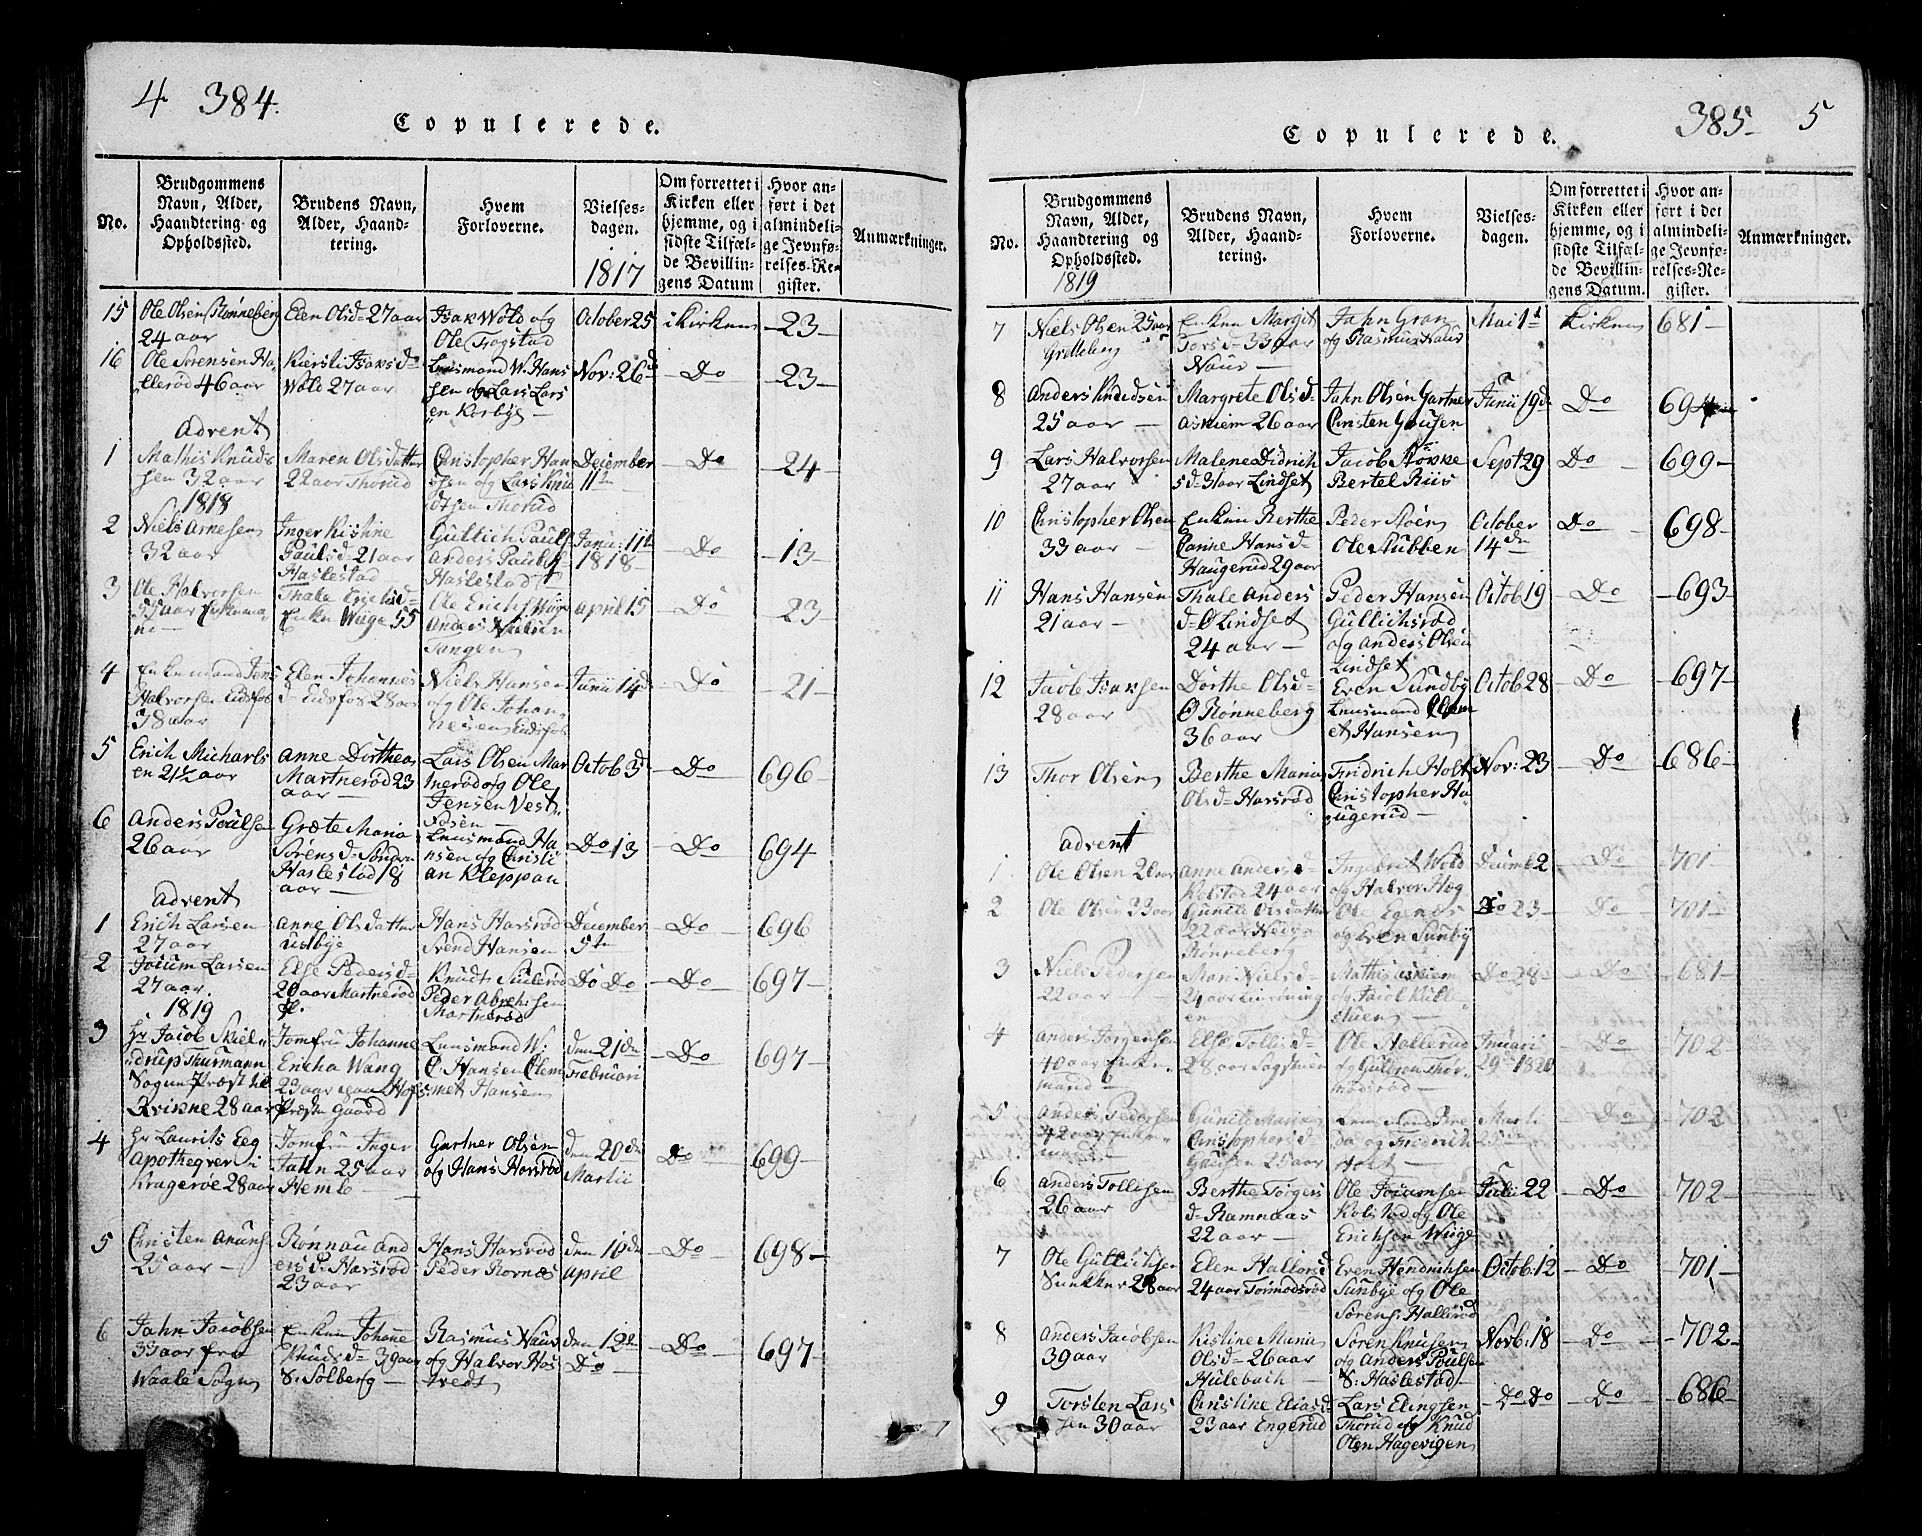 4 384.
Copulerede.
No.
Brudgommens Navn, Alder, Haandtering og Opholdssted.
Brudens Navn, Alder, Haandtering.
Hvem Forloverne.
Vielsesdagen.
1817
Om forrettet i Kirken eller hjemme, og i sidste Tilfælde Bevillingens Datum
Hvor anført i det almindelige Jevnførelses-Register.
Anmærkninger.
15 Ole Olsen Rønneberg 24 aar
Elen Olsd 27 aar
Isak Wold og Ole Fogstad
October 25
i Kirken
23
16 Ole Sørensen Hallerød 46 aar
Kiersti Isaksd Wold 27 aar
Lensmand W. Hanssen og Lars Larsen Korbye
Nov: 26d
Do
23
Advent
1 Mathis Knudssen 32 aar
Maren Olsdatter 22 aar Thorud
Christopher Hansen og Lars Knudtsen Thorud
December 11te
Do
24
1818
2 Niels Arnesen 32 aar
Inger Kistine Paulsd 21 aar Haslestad
Gullich Pauls Anders Pauls Haslestad
Janu: 11te 1818
Do
13
3 Ole Halvorsen 55 aar
Thale Erichsd Enke Wiige 55
Ole Erichs Wiige Anders Nielsen Tangen
April 15
Do
23
4 Enkemand Jens Halvorsen Eidsfos 38 aar
Elen Johannesd Eidsfos 28 aar
Niels Hansen og Ole Johannesen Eidsfos
Junii 14d
Do
21
5 Erich Michaelsen 21½ aar
Anne Dorthea Martnerød 23 aar
Lars Olsen Martnerød og Ole Jensen Vestfosen
Octob 3d
Do
696
6 Anders Poulsen 26 aar
Græte Maria Sørensd Søndre Haslestad 18 aar
Lensmand Hansen og Christian Kleppan
Do 13
Do
694
Advent
1 Erich Larsen 27 aar
Anne Olsdatter Ustbye
Hans Harsrød Svend Hansen
December 5te
Do
696
2 Jocum Larsen 27 aar
Else Pedersd 20 aar Martnerød
Knudt Sulerød Peder Abrahsen Martnerød
Do Do
Do
697
1819
3 Hr Jacob Skieldrup Thurmann Sogne Præst til Kvikne 28 aar
Jomfru Johanne Ericha Wang 23 aar paa Hofs Præste Gaard
Lensmand W. C. Hansen Clemmet Hansen
den 21de Februari
Do
697
4 Hr Laurits Eeg Apotheqver i Kragerøe 28 aar
Jomfru Inger Jahn 25 aar Hemb
Gartner Olsen og Hans Harsrød
den 20de Martii
Do
699
5 Christen Anuns 25 aar
Rønnau Andersd Harsrød 23 aar
Hans Harsrød Peder Rovnæs
den 10de April
Do
698
6 Jahn Jacobsen 33 aar fra Waale Sogn
Enken Johanne Knudsd 39 aar S: Solberg
Rasmus Naus og Halvor Hostvedt
den 12te Do
Do
697
385 5
Copulerede.
No.
Brudgommens Navn, Alder, Haandtering og Opholdssted.
1819
Brudens Navn, Alder, Haandtering.
Hvem Forloverne.
Vielsesdagen.
Om forrettet i Kirken eller hjemme, og i sidste Tilfælde Bevillingens Datum.
Hvor anført i det almindelige Jevnførelses-Register.
Anmærkninger.
7 Niels Olsen 25 aar Gretteberg
Enken Margit Torsd 33 aar Naus
Jahn Gran og Rasmus Naus
Mai 1t
Kirken
681
8 Anders Knudsen 25 aar
Margrete Olsd Askiem 26 aar
Jahn Olsen Gartner Christen Gousen
Junii 19de
Do
694
9 Lars Halvorsen 27 aar
Malene Didrichsd 31 aar Lindset
Jacob Støkke Bertel Riis
Sept 29
Do
699
10 Christopher Olsen 33 aar
Enken Berthe Canne Hansd Haugerud 29 aar
Peder Moen Ole Stubben
October 14de
Do
698
11 Hans Hansen 21 aar
Thale Andersd Ø Lindset 24 aar
Peder Hansen Gullichsrød og Anders Olsen Lindset
Octob 19
Do
693
12 Jacob Isaksen 28 aar
Dorthe Olsd Ø Rønneberg 36 aar
Even Sundby Lensmand Clemet Hansen
Octob 28
Do
697
13 Thor Olsen
Berthe Maria Olsd Harsrød
Fridrich Holt Christopher Haugerud
Nov: 23
Do
686
Advent
1 Ole Olsen 21 aar
Anne Andersd Kolstad 24 aar
Ingebret Wold og Halvor Høg
Decemb 2
Do
701
2 Ole Olsen 33 aar
Gunild Olsdatter 22 aar Nedre Rønneberg
Ole Egenæs og Even Sunby
Do 23
Do
701
3 Niels Pedersen 22 aar
Mari Nielsd 24 aar
Mathis Askiem og Jacob
Do 28
Do
681
4 Anders Jørgensen 40 aar Enkemand
Else Tollisd 28 aar Sagstuen
Ole Hallerud og Gulbrn Thormodsrød
Januari 29de 1820
Do
702
5 Anders Pedersen 42 aar Enkemand
Gunild Maria Christophersd Gousen 25 aar
Lensmand og Fredrich Holt
Marti
Do
702
6 Anders Tollefsen 26 aar
Berthe Torgersd Ramnaas 22 aar
Ole Jocumsen Kolstad og Ole Erichsen Wiige
Julii 22
Do
702
7 Ole Gullichsen Sunkker 28 aar
Elen Hallorsd 24 aar Tormodsrød
Even Hendrichsen Sunbye og Ole Sørens: Hallerød
Octob. 12
Do
701
8 Anders Jacobsen 39 aar
Kistine Maria Olsd 26 aar Hulebach
Søren Knusen og Anders Poulsen S: Haslestad
Novb. 18
Do
702
9 Torsten Larssen 30 aar
Christine Eliasd 23 aar Engerud
Lars Elingsen Thorud og Knud Olen Hagevigen
Do Do
Do
686